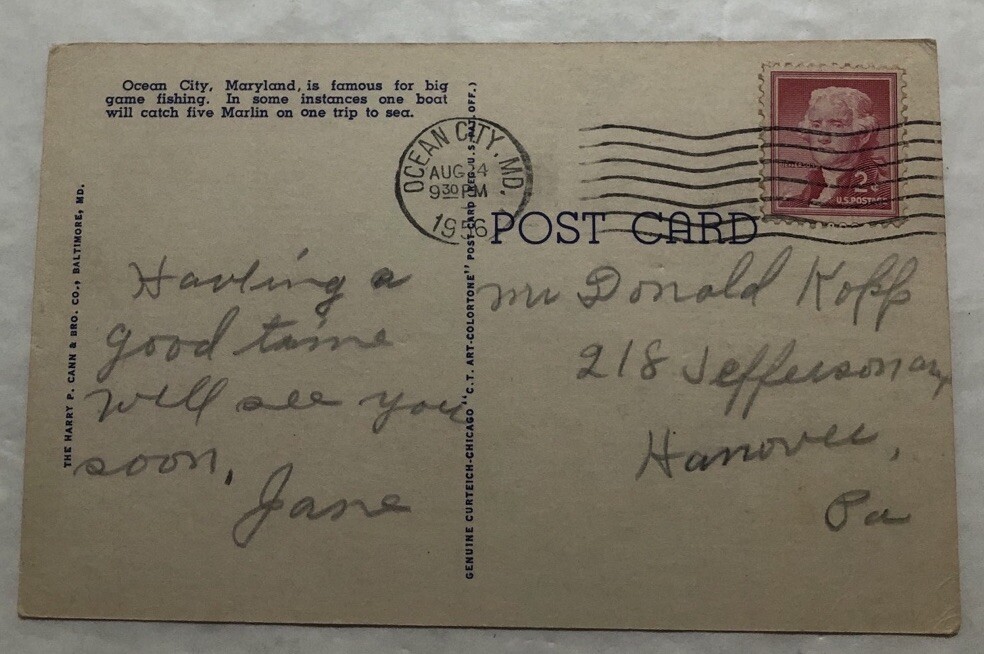 Ocean City, Maryland, is famous for big
game fishing. In some instances one boat
will catch five Marlin on one trip to sea.
THE HARRY P. CANN & BRO. CO., BALTIMORE, MD.
GENUINE CURTEICH-CHICAGO "C.T. ART-COLORTONE" POST CARD (REG. U.S. PAT. OFF.)
OCEAN CITY, MD.
AUG 4
9 30 PM
1956
2¢
U.S. POSTAGE
POST CARD
Having a
good time
will see you
soon,
Jane
Mr Donald Kopp
218 Jefferson
Hanover,
Pa